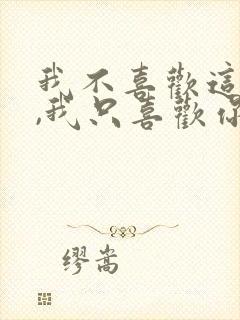 我不喜歡這
,我只喜歡你
繆嵩